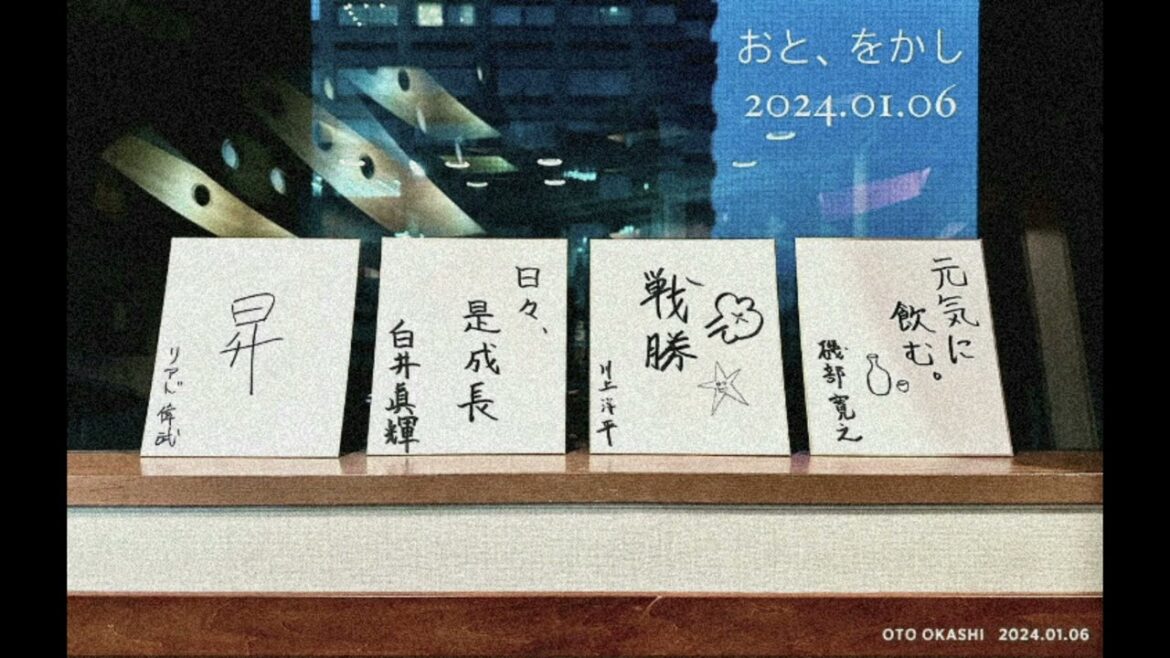 おと、をかし
2024.01.06
昇
リアド 偉武
日々、
是成長
白井眞輝
戦
勝
川上洋平
元気に
飲む。
磯部寛之
OTO OKASHI 2024.01.06